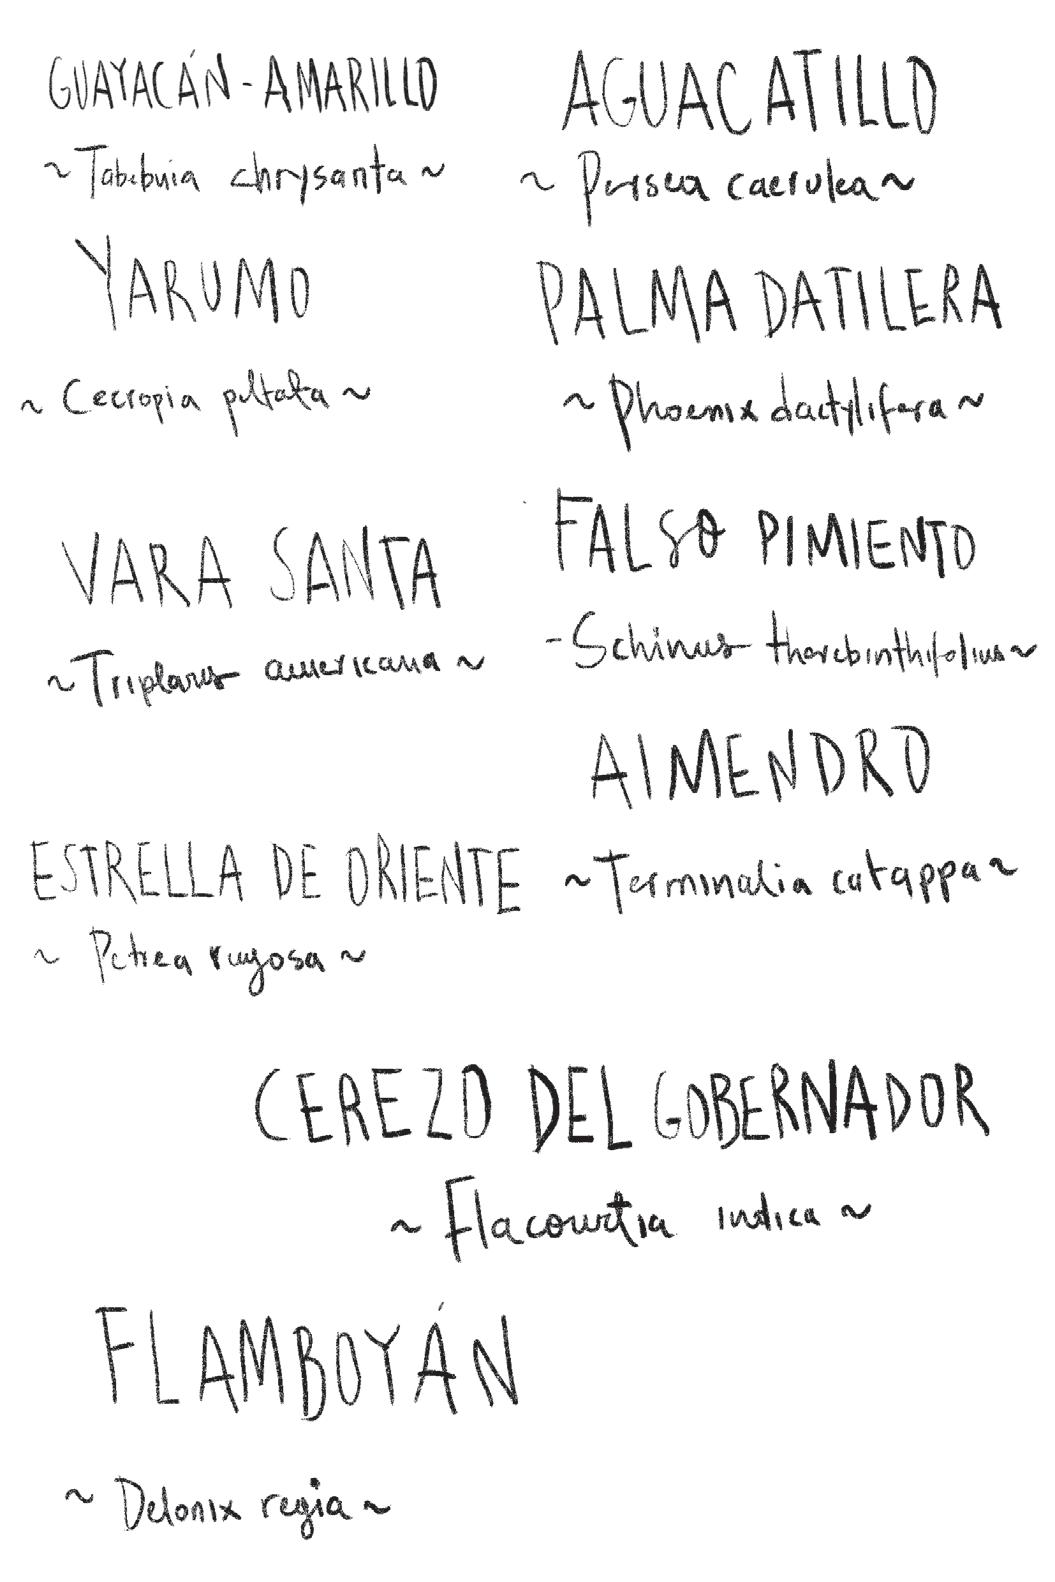 GUAYACÁN-AMARILLO
~Tabebuia chrysanta~
YARUMO
~Cecropia peltata~
VARA SANTA
~Triplaris americana~
ESTRELLA DE ORIENTE
~Petrea rugosa~
AGUACATILLO
~Persea caerulea~
PALMA DATILERA
~Phoenix dactylifera~
FALSO PIMIENTO
-Schinus therebinthifolius~
AlMENDRO
~Terminalia catappa~
CEREZO DEL GOBERNADOR
~Flacourtia indica~
FLAMBOYÁN
~Delonix regia~